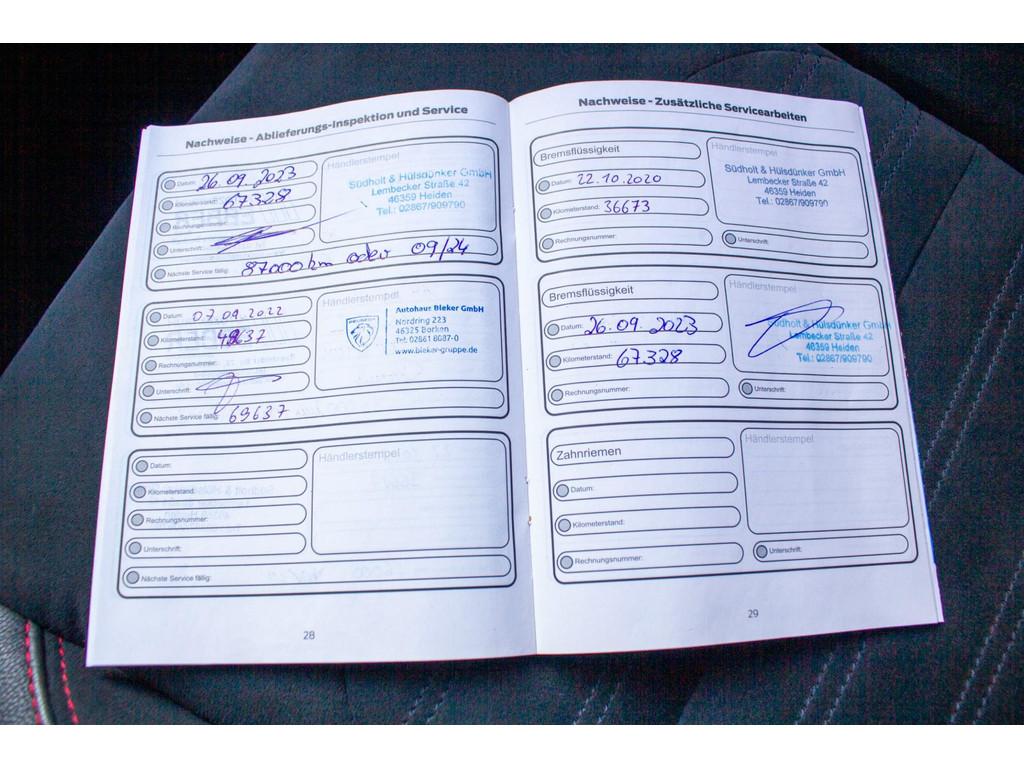 Nachweise - Ablieferungs-Inspektion und Service
Datum: 26.09.2023
Kilometerstand: 67328
Rechnungsnummer:
Unterschrift:
Nächste Service fällig: 87000km oder 09/24
Händlerstempel
Südholt & Hülsdünker GmbH
Lembecker Straße 42
46359 Heiden
Tel.: 02867/909790
Datum: 07.09.2022
Kilometerstand: 49637
Rechnungsnummer:
Unterschrift:
Nächste Service fällig: 69637
Händlerstempel
Autohaus Bleker GmbH
Nordring 223
46325 Borken
Tel: 02861 8087-0
www.bleker-gruppe.de
Datum:
Kilometerstand:
Rechnungsnummer:
Unterschrift:
Nächste Service fällig:
Händlerstempel
28
Nachweise - Zusätzliche Servicearbeiten
Bremsflüssigkeit
Datum: 22.10.2020
Kilometerstand: 36673
Rechnungsnummer:
Unterschrift:
Händlerstempel
Südholt & Hülsdünker GmbH
Lembecker Straße 42
46359 Heiden
Tel.: 02867/909790
Bremsflüssigkeit
Datum: 26.09.2023
Kilometerstand: 67.328
Rechnungsnummer:
Unterschrift:
Händlerstempel
Südholt & Hülsdünker GmbH
Lembecker Straße 42
46359 Heiden
Tel.: 02867/909790
Zahnriemen
Datum:
Kilometerstand:
Rechnungsnummer:
Unterschrift:
Händlerstempel
29